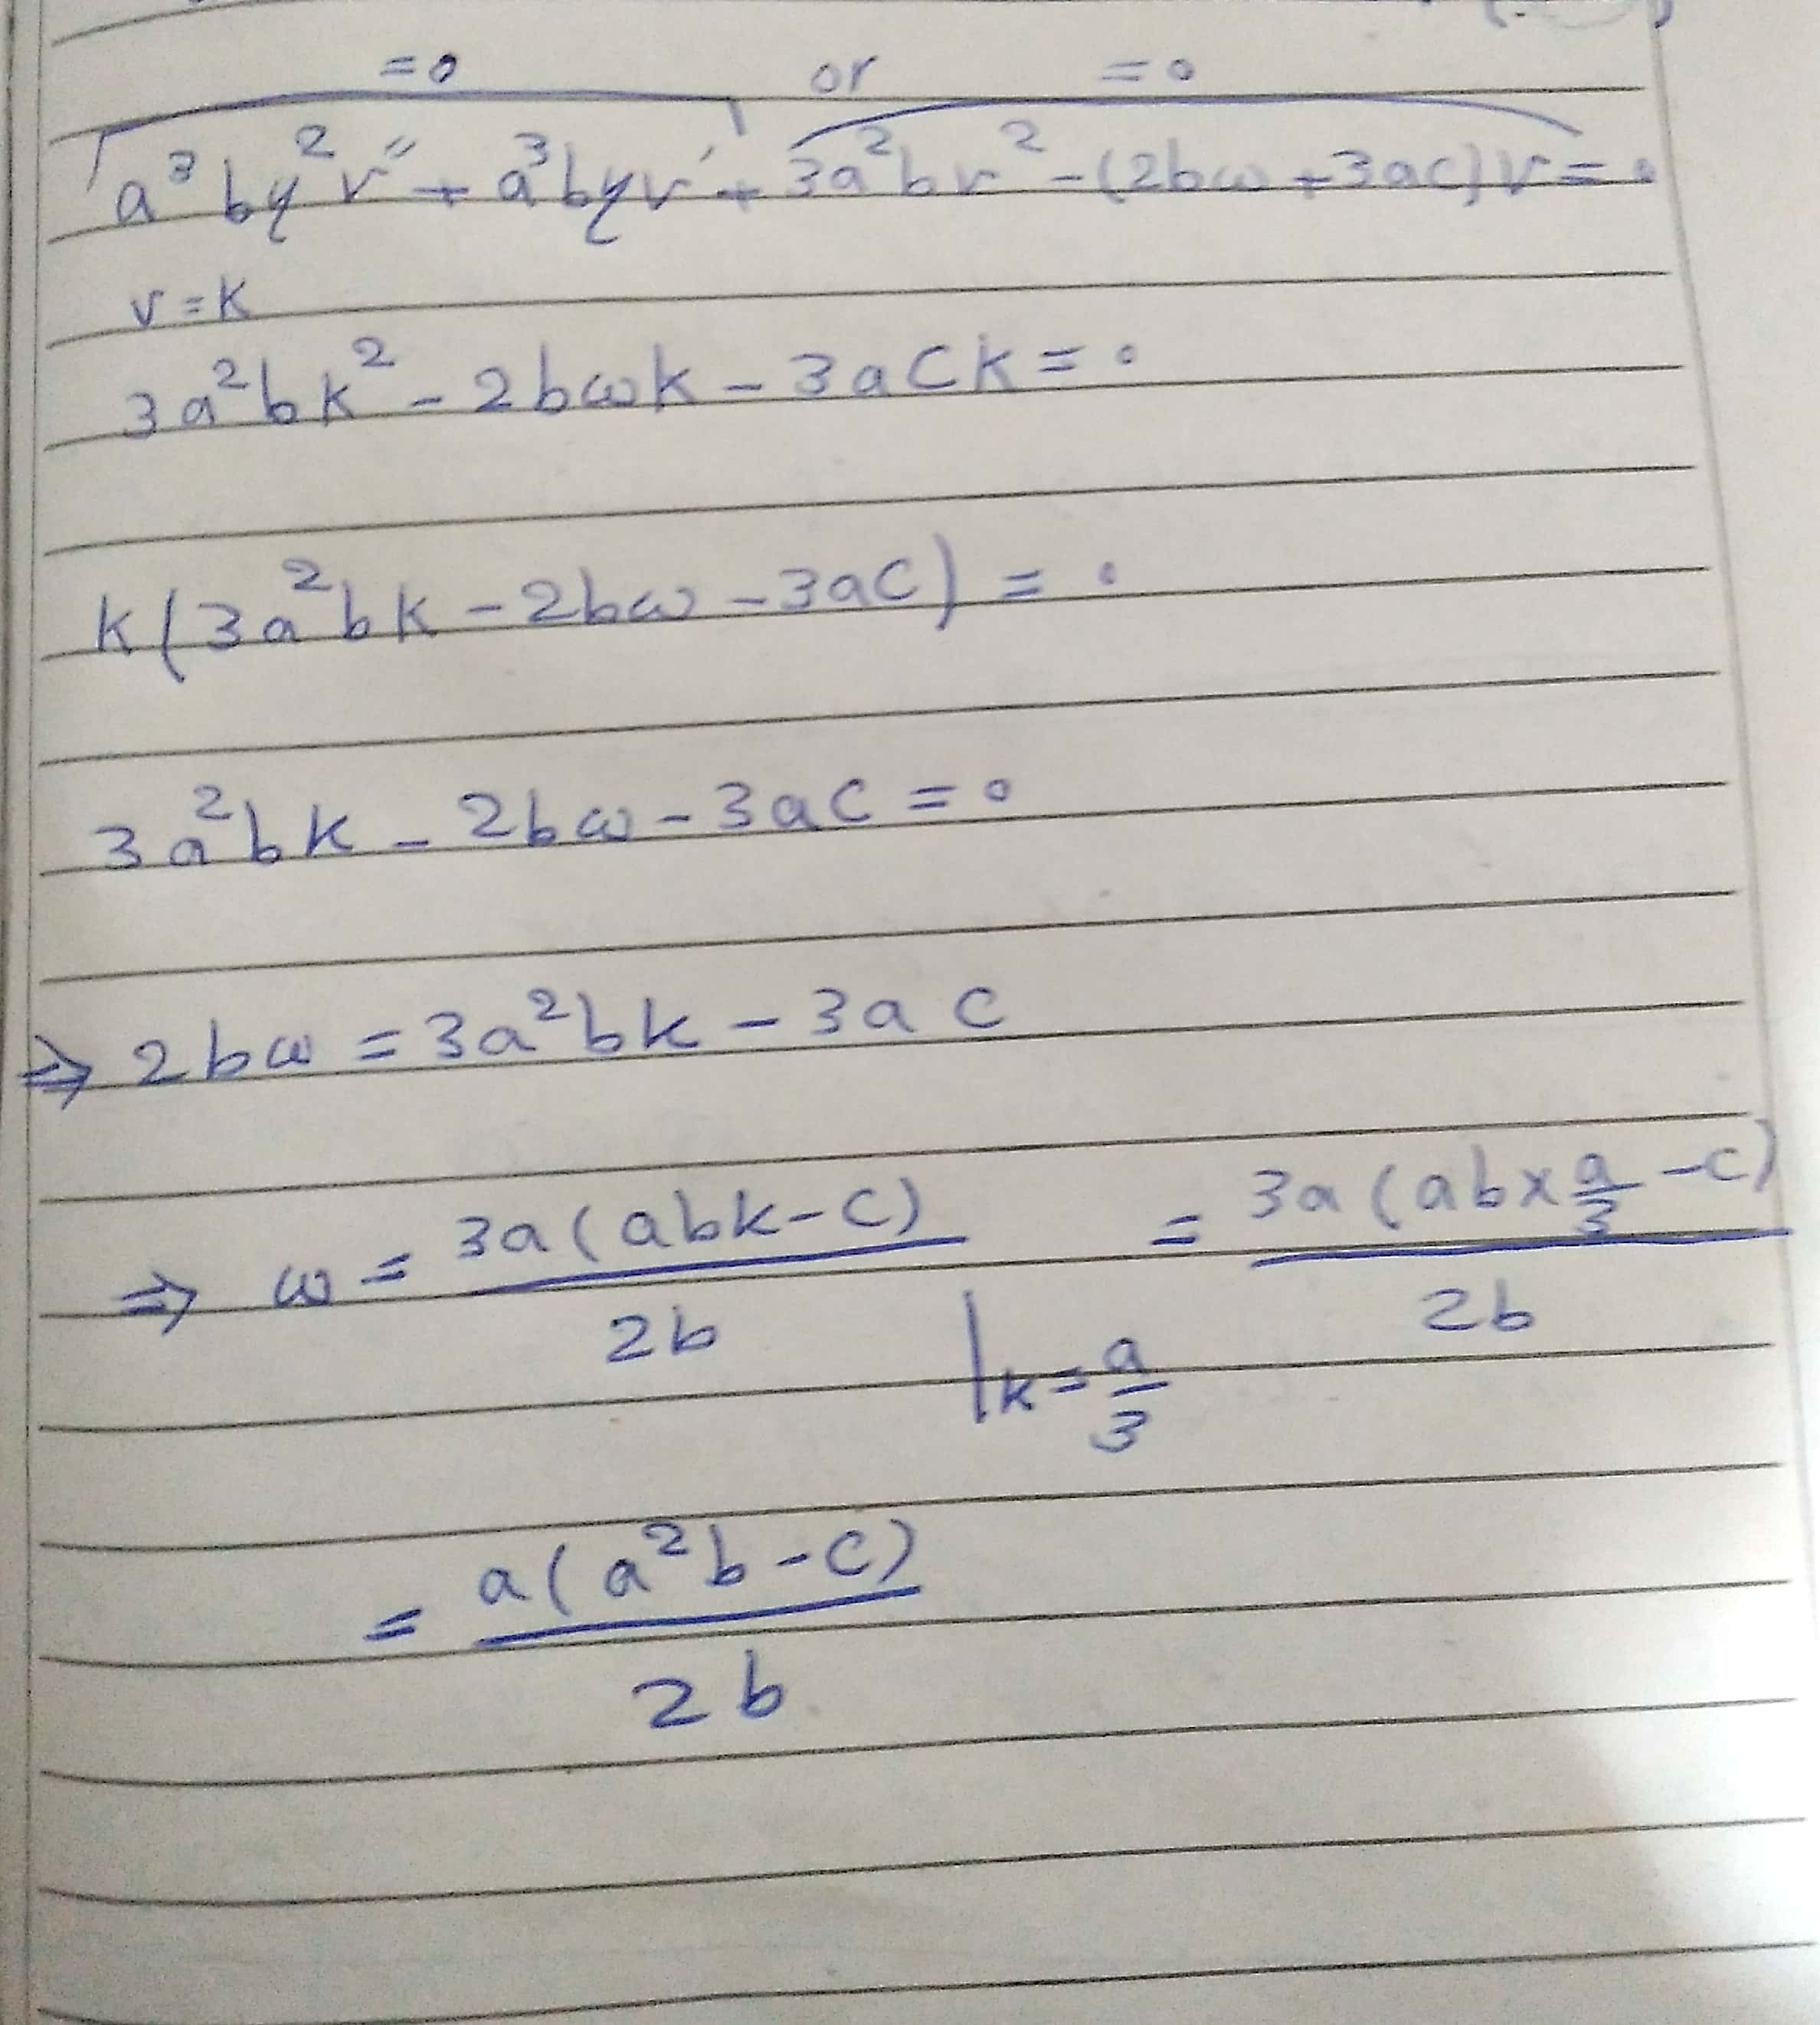 =0 or =0
a³by²v″ + a³byv′ + 3a²bv² - (2bω + 3ac)v = 0
v = k
3a²bk² - 2bωk - 3ack = 0
k(3a²bk - 2bω - 3ac) = 0
3a²bk - 2bω - 3ac = 0
⇒ 2bω = 3a²bk - 3ac
⇒ ω = 3a(abk-c)/2b |k=a/3 = 3a(ab×a/3-c)/2b
= a(a²b-c)/2b